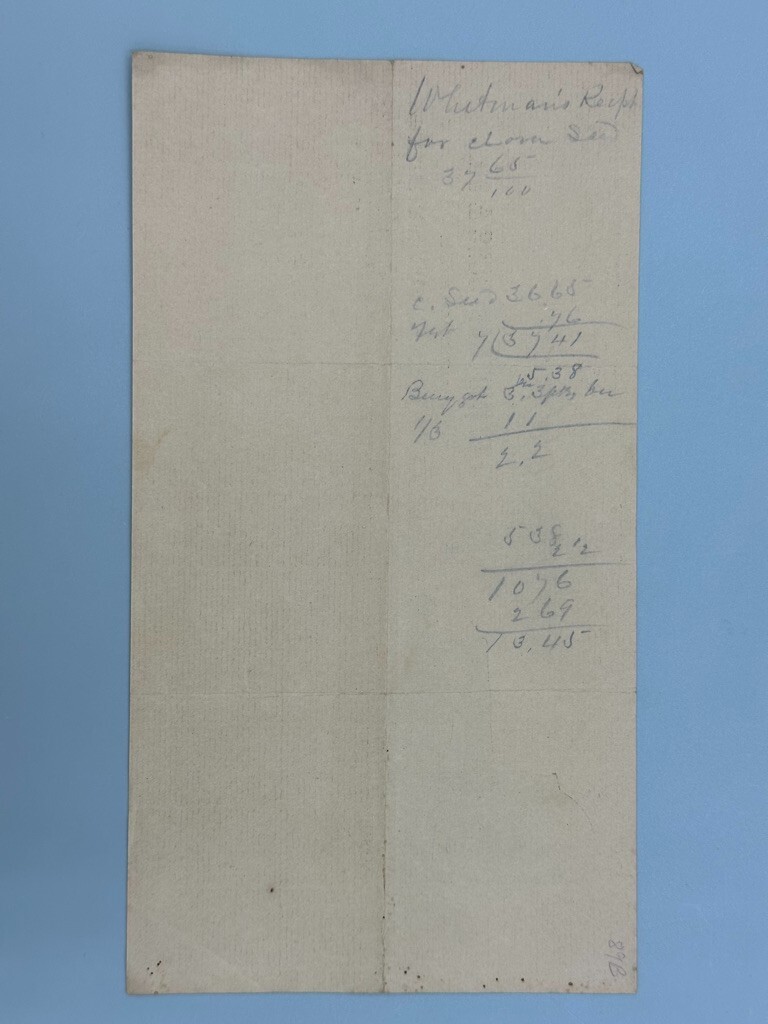 Whitman's Recpt
for clover Seed
37 65/100
c. Seed 36.65
.76
7(37 41
5,38
3,3 pks
1/3 11
2,2
538
2 1/2
1076
269
13,45
89B